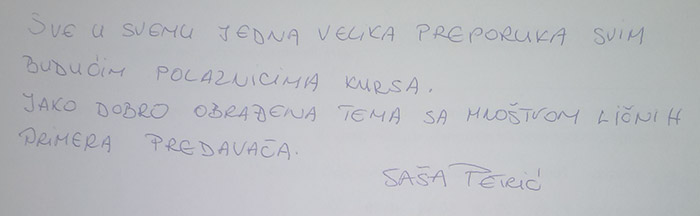 SVE U SVEMU JEDNA VELIKA PREPORUKA SVIM
BUDUĆIM POLAZNICIMA KURSA.
JAKO DOBRO OBRAĐENA TEMA SA MNOŠTVOM LIČNIH
PRIMERA PREDAVAČA.
SAŠA